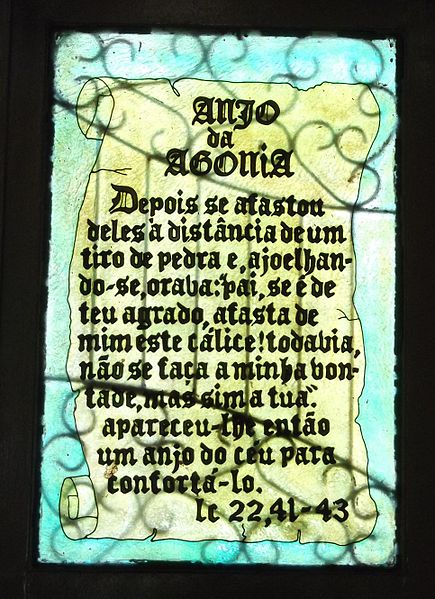 ANJO
da
AGONIA
Depois se afastou
deles à distância de um
tiro de pedra e, ajoelhan-
do-se, orava: "pai, se é de
teu agrado, afasta de
mim este cálice! todavia,
não se faça a minha von-
tade, mas sim a tua".
apareceu-lhe então
um anjo do céu para
confortá-lo.
lc 22,41-43